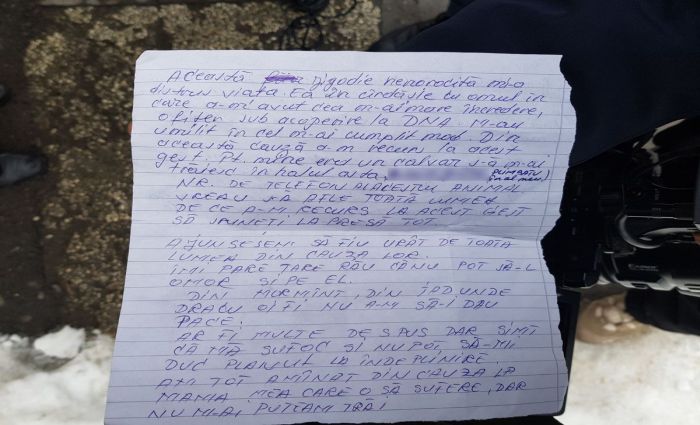 Această jigodie nenorocită mi-a
distrus viața. Ea în cîrdășie cu omul în
care a-m avut cea m-ai mare încredere,
ofițer sub acoperire la DNA. M-au
umilit în cel m-ai cumplit mod. Din
această cauză a-m recurs la acest
gest. Pt. mine erea un calvar să m-ai
trăiesc în halul ăsta,
PLIMBATU
în al meu)
NR. DE TELEFON ALACESTUI ANIMAL
VREAU SĂ AFLE TOATĂ LUMEA
DE CE A-M RECURS LA ACEST GEST
SĂ SPUNEȚI LA PRESĂ TOT.
AJUNSESEM SĂ FIU URÂT DE TOATA
LUMEA DIN CAUZA LOR.
ÎMI PARE TARE RĂU CĂ NU POT SĂ-L
OMOR ȘI PE EL.
DIN MORMÎNT, DIN IAD UNDE
DRACU OI FI NU A-M SĂ-I DAU
PACE.
AR FI MULTE DE SPUS DAR SIMT
CĂ MĂ SUFOC ȘI NU POT SĂ-MI
DUC PLANUL LA ÎNDEPLINIRE.
A-M TOT AMÎNAT DIN CAUZA LA
MAMA MEA CARE O SĂ SUFERE, DAR
NU M-AI PUTEAM TRĂI
Canon